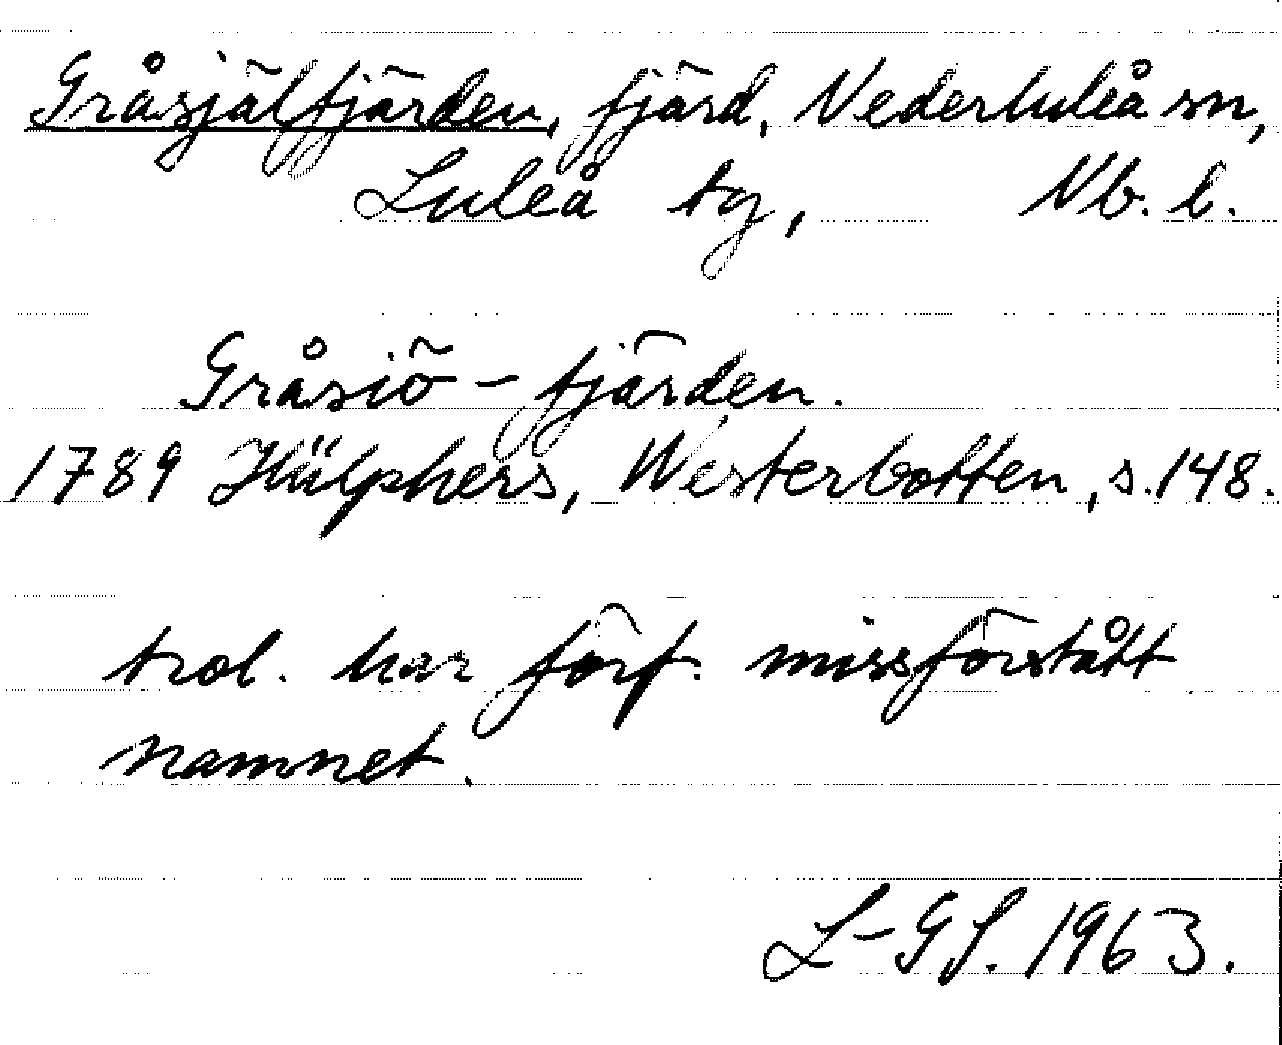 Gråsjälfjärden, fjärd, Nederluleå sn,
Luleå tg, Nb. l.
Gråsiö - fjärden.
1789 Hülphers, Westerbotten, s. 148.
trol. har förf. missförstått
namnet.
L-GS. 1963.